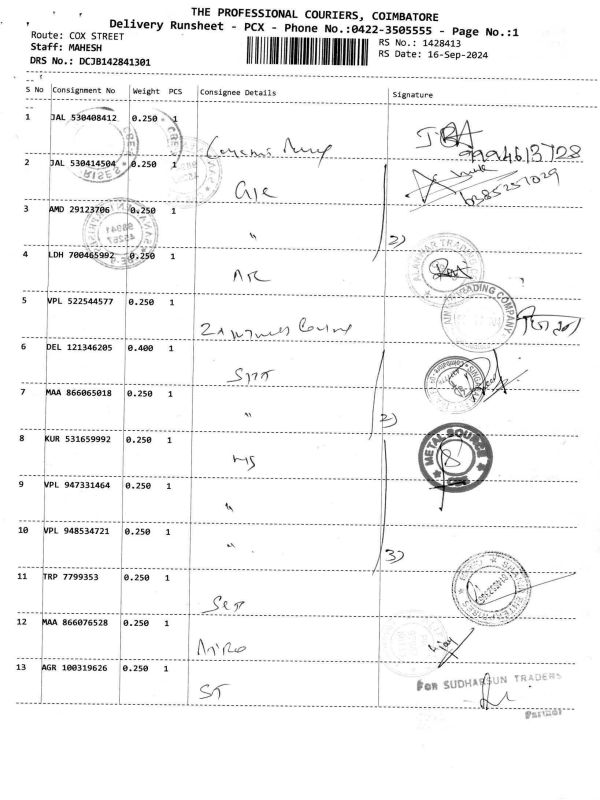 THE PROFESSIONAL COURIERS, COIMBATORE
Delivery Runsheet - PCX - Phone No.:0422-3505555 - Page No.:1
Route: COX STREET
Staff: MAHESH
DRS No.: DCJB142841301
RS No.: 1428413
RS Date: 16-Sep-2024
S No Consignment No Weight PCS Consignee Details Signature
1 JAL 530408412 0.250 1
9994613728
2 JAL 530414504 0.250 1
6385251029
3 AMD 29123706 0.250 1 " 2)
4 LDH 700465992 0.250 1
ALANKAR TRADING
5 VPL 522544577 0.250 1
TRADING COMPANY
6 DEL 121346205 0.400 1
7 MAA 866065018 0.250 1 " 2)
8 KUR 531659992 0.250 1 MS
METAL SOURCE
9 VPL 947331464 0.250 1 "
10 VPL 948534721 0.250 1 " 3)
11 TRP 7799353 0.250 1
12 MAA 866076528 0.250 1
Vijay
13 AGR 100319626 0.250 1 ST
For SUDHARSUN TRADERS
Partner